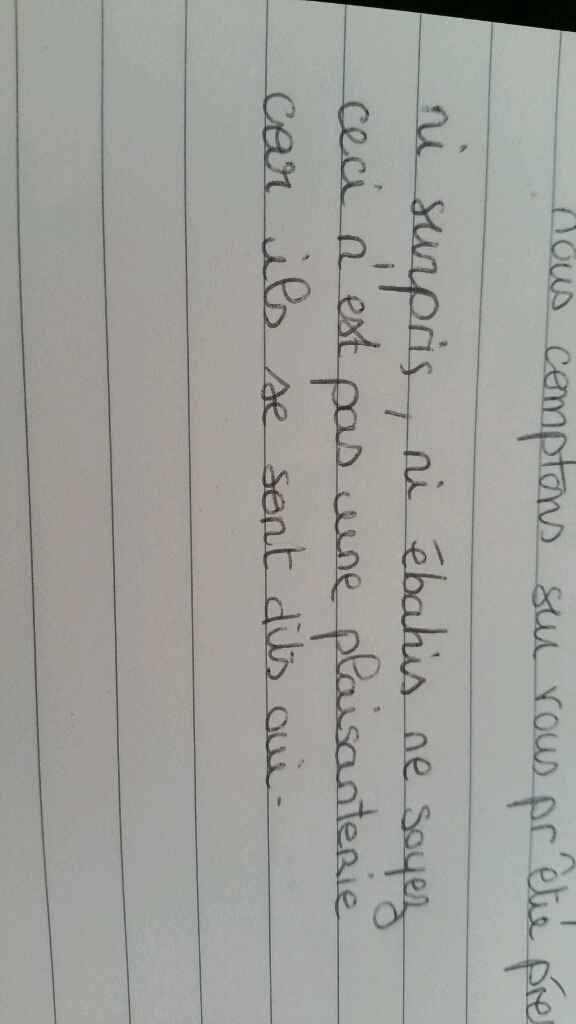 nous comptons sur vous pr êtié
ni surpris, ni ébahis ne soyez
ceci n'est pas une plaisanterie
car ils se sont dits oui.